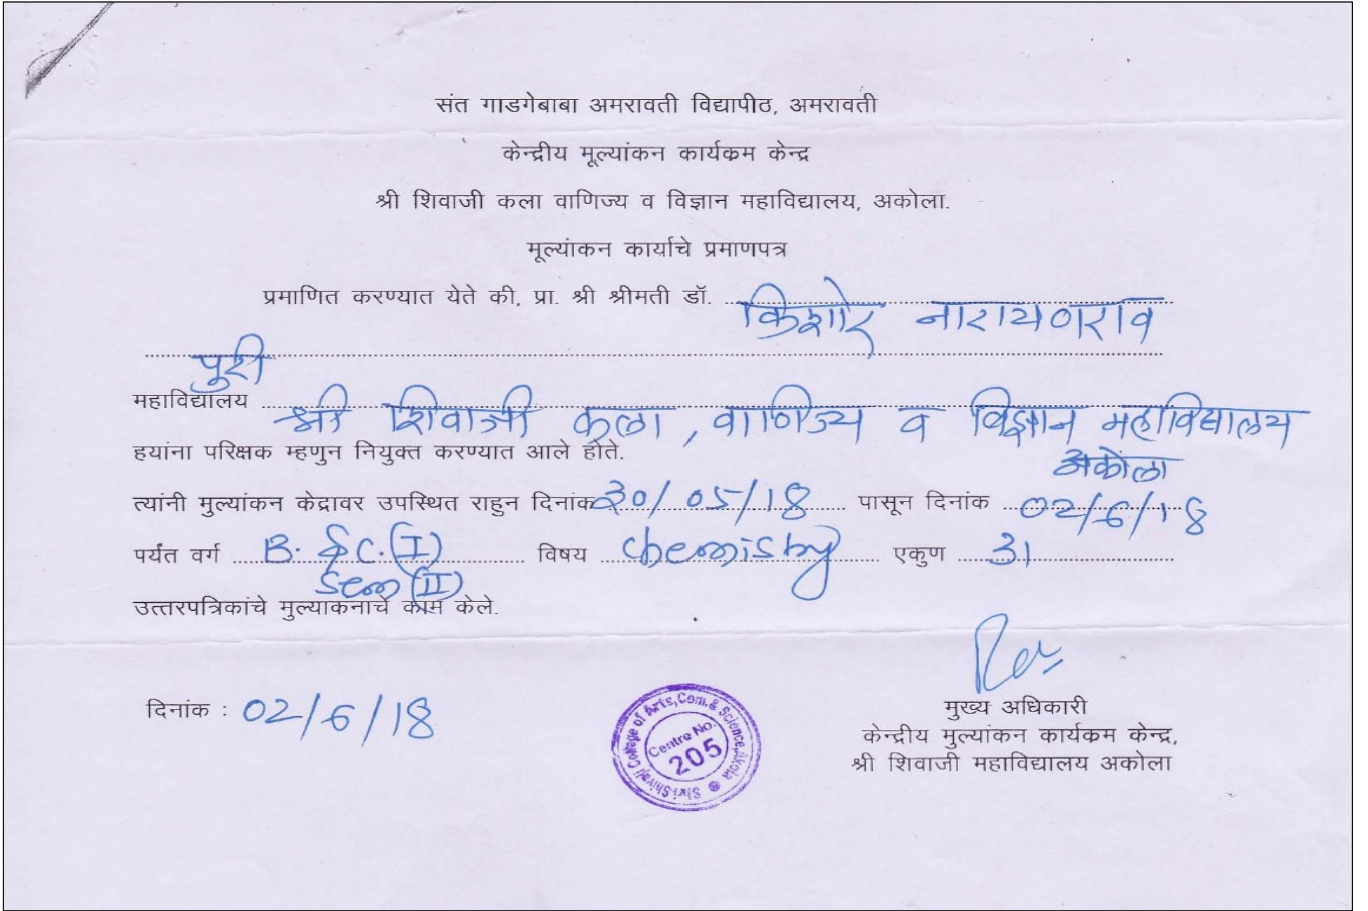 संत गाडगेबाबा अमरावती विद्यापीठ, अमरावती
केन्द्रीय मूल्यांकन कार्यकम केन्द्र
श्री शिवाजी कला वाणिज्य व विज्ञान महाविद्यालय, अकोला.
मूल्यांकन कार्याचे प्रमाणपत्र
प्रमाणित करण्यात येते की, प्रा. श्री श्रीमती डॉ. किशोर नारायणराव
पुरी
महाविद्यालय श्री शिवाजी कला, वाणिज्य व विज्ञान महाविद्यालय
अकोला
हयांना परिक्षक म्हणुन नियुक्त करण्यात आले होते.
त्यांनी मुल्यांकन केद्रावर उपस्थित राहुन दिनांक 30/05/18 पासून दिनांक 02/6/18
पर्यंत वर्ग B. Sc. (I) विषय Chemistry एकुण 31
Sem (II)
उत्तरपत्रिकांचे मुल्याकनाचे काम केले.
दिनांक : 02/6/18
Shri Shivaji College of Arts, Com. & Science, Akola
Centre No.
205
मुख्य अधिकारी
केन्द्रीय मुल्यांकन कार्यकम केन्द्र,
श्री शिवाजी महाविद्यालय अकोला